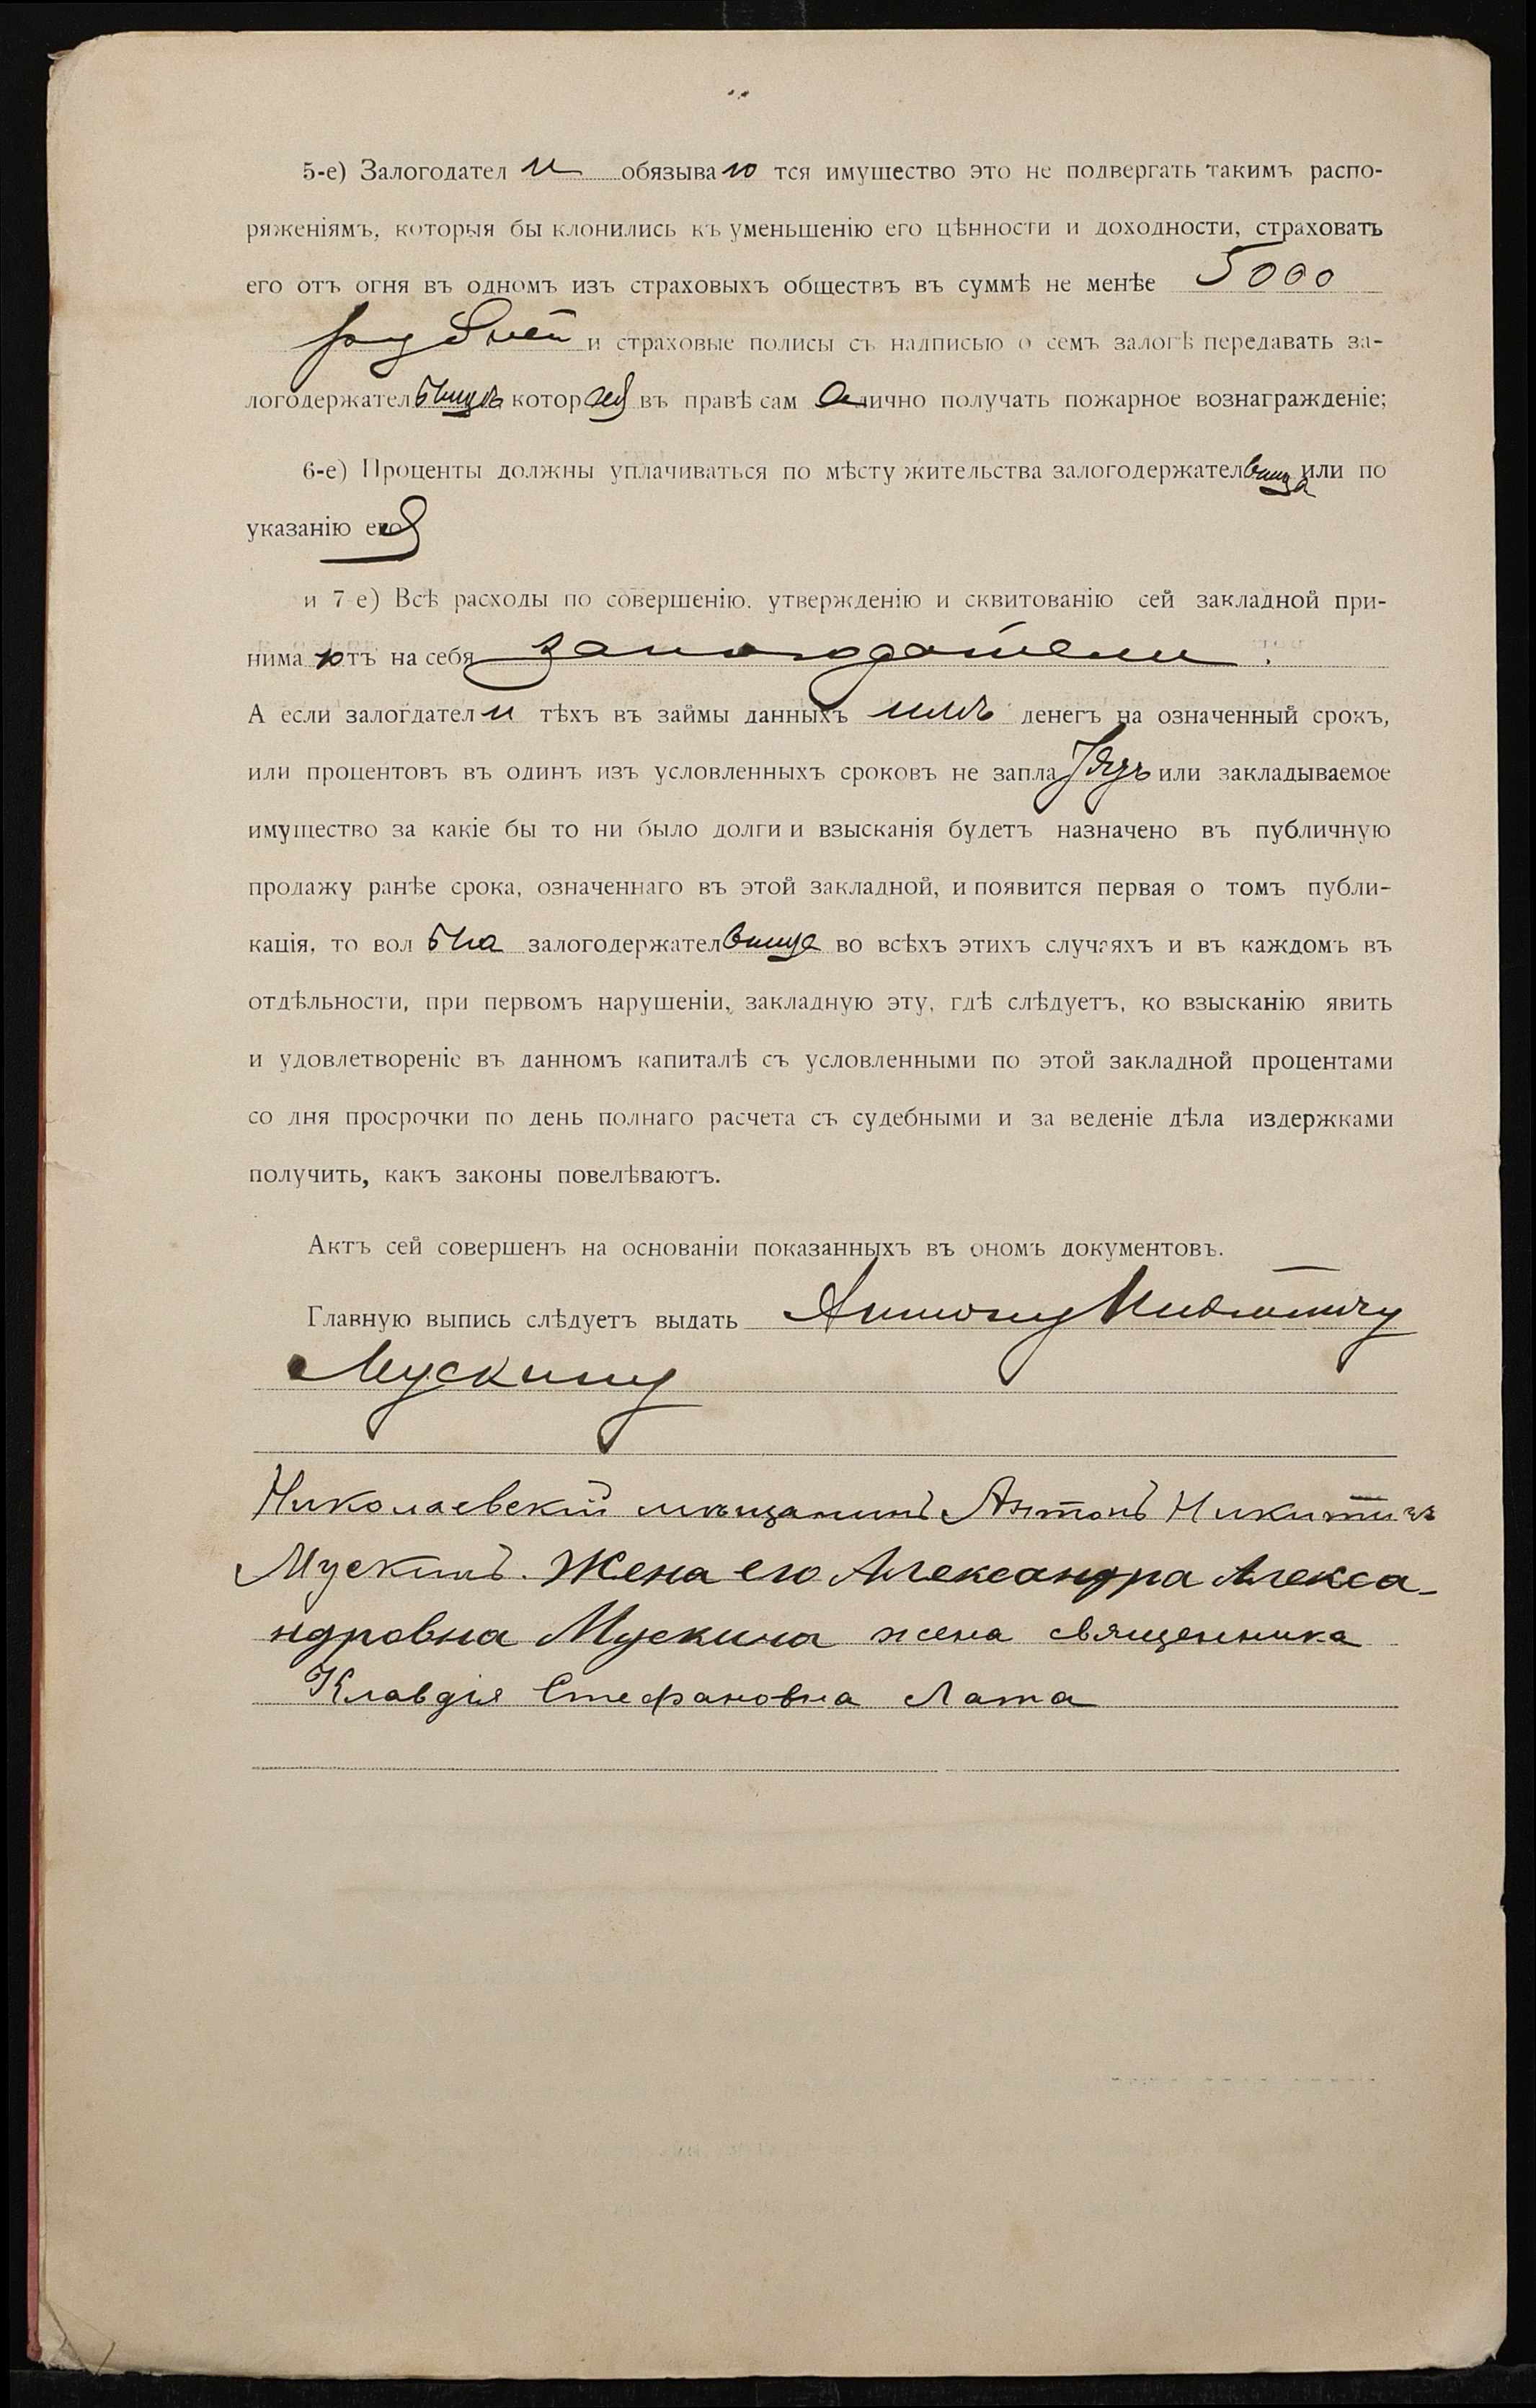 5-е) Залогодатели обязываются имущество это не подвергать такимъ распо-
ряженіямъ, которыя бы клонились къ уменьшенію его цѣнности и доходности, страховать
его отъ огня въ одномъ изъ страховыхъ обществъ въ суммѣ не менѣе 5000
рублей и страховые полисы съ надписью о семъ залогѣ передавать за-
логодержательницѣ которая въ правѣ сама лично получать пожарное вознагражденіе;
6-е) Проценты должны уплачиваться по мѣсту жительства залогодержательница или по
указанію ея
и 7-е) Всѣ расходы по совершенію, утвержденію и сквитованію сей закладной при-
нимаютъ на себя залогодатели.
А если залогдатели тѣхъ въ займы данныхъ имъ денегъ на означенный срокъ,
или процентовъ въ одинъ изъ условленныхъ сроковъ не заплатятъ или закладываемое
имущество за какіе бы то ни было долги и взысканія будетъ назначено въ публичную
продажу ранѣе срока, означеннаго въ этой закладной, и появится первая о томъ публи-
кація, то вольна залогодержательница во всѣхъ этихъ случаяхъ и въ каждомъ въ
отдѣльности, при первомъ нарушеніи, закладную эту, гдѣ слѣдуетъ, ко взысканію явить
и удовлетвореніе въ данномъ капиталѣ съ условленными по этой закладной процентами
со дня просрочки по день полнаго расчета съ судебными и за веденіе дѣла издержками
получить, какъ законы повелѣваютъ.
Актъ сей совершенъ на основаніи показанныхъ въ ономъ документовъ.
Главную выпись слѣдуетъ выдать Антону Никитичу
Мускину
Николаевскій мѣщанинъ Антонъ Никитичъ
Мускинъ. Жена его Александра Алекса-
ндровна Мускина жена священника
Клавдія Стефановна Лата